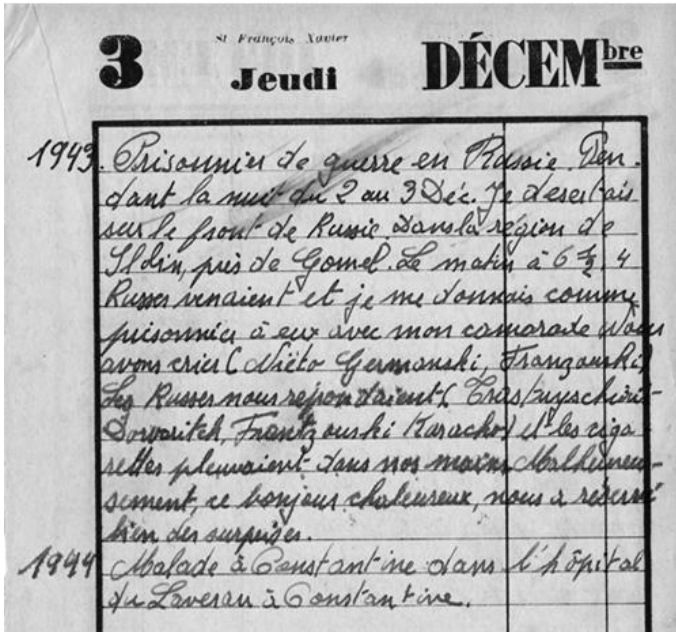 St François Xavier
3 Jeudi DÉCEMbre
1943. Prisonnier de guerre en Russie. Pen-
dant la nuit du 2 au 3 Déc. Je desertais
sur le front de Russie Dans la région de
près de Gomel. Le matin à 6 ½, 4
Russes venaient et je me donnais comme
prisonnier à eux avec mon camarade Nous
avons crier (Niéto Germanski, Franzouski)
Les Russes nous repondaient (
Frantzouski Karacho) et les ciga-
rettes pleuvaient dans nos mains Malheureu-
sement, ce bonjour chaleureux, nous a réservé
bien des surprises.
1944 Malade à Constantine dans l'hôpital
du Laveran à Constantine.